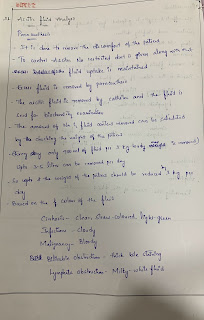 Ascitic fluid analysis
Paracentesis
- It is done to reduce the discomfort of the patient.
- To control ascites Na restricted diet is given along with
fluid uptake is maintained
- Excess fluid is removed by paracentesis
- The ascitic fluid is removed by catheter and the fluid is
send for biochemistry examination
- The amount of Na+, fluid content removed can be calculated
by checking the weight of the patient
only round of fluid per 1 kg body weight is removed)
Upto 3-5 litres can be removed per day
- So upto the weight of the patient should be reduced 1 kg per
day
- Based on the colour of the fluid
Cirrhosis - Clear, straw-coloured, light-green
Infection - Cloudy
Malignancy - Bloody
Biliary obstruction - bile staining
Lymphatic obstruction - Milky-white fluid